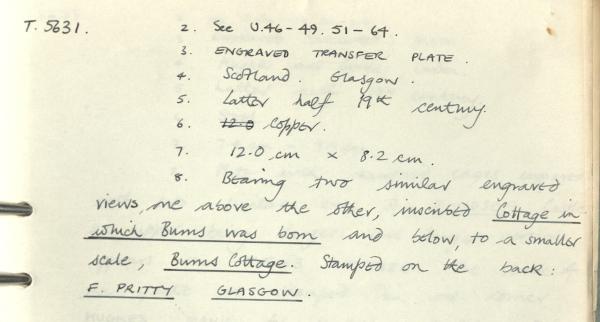 T. 5631. 2. See U.46-49. 51-64.
3. ENGRAVED TRANSFER PLATE.
4. Scotland. Glasgow.
5. Latter half 19th century.
6. 12.0 Copper.
7. 12.0 cm x 8.2 cm.
8. Bearing two similar engraved
views, one above the other, inscribed Cottage in
which Burns was born and below, to a smaller
scale, Burns Cottage. Stamped on the back:
F. PRITTY GLASGOW.